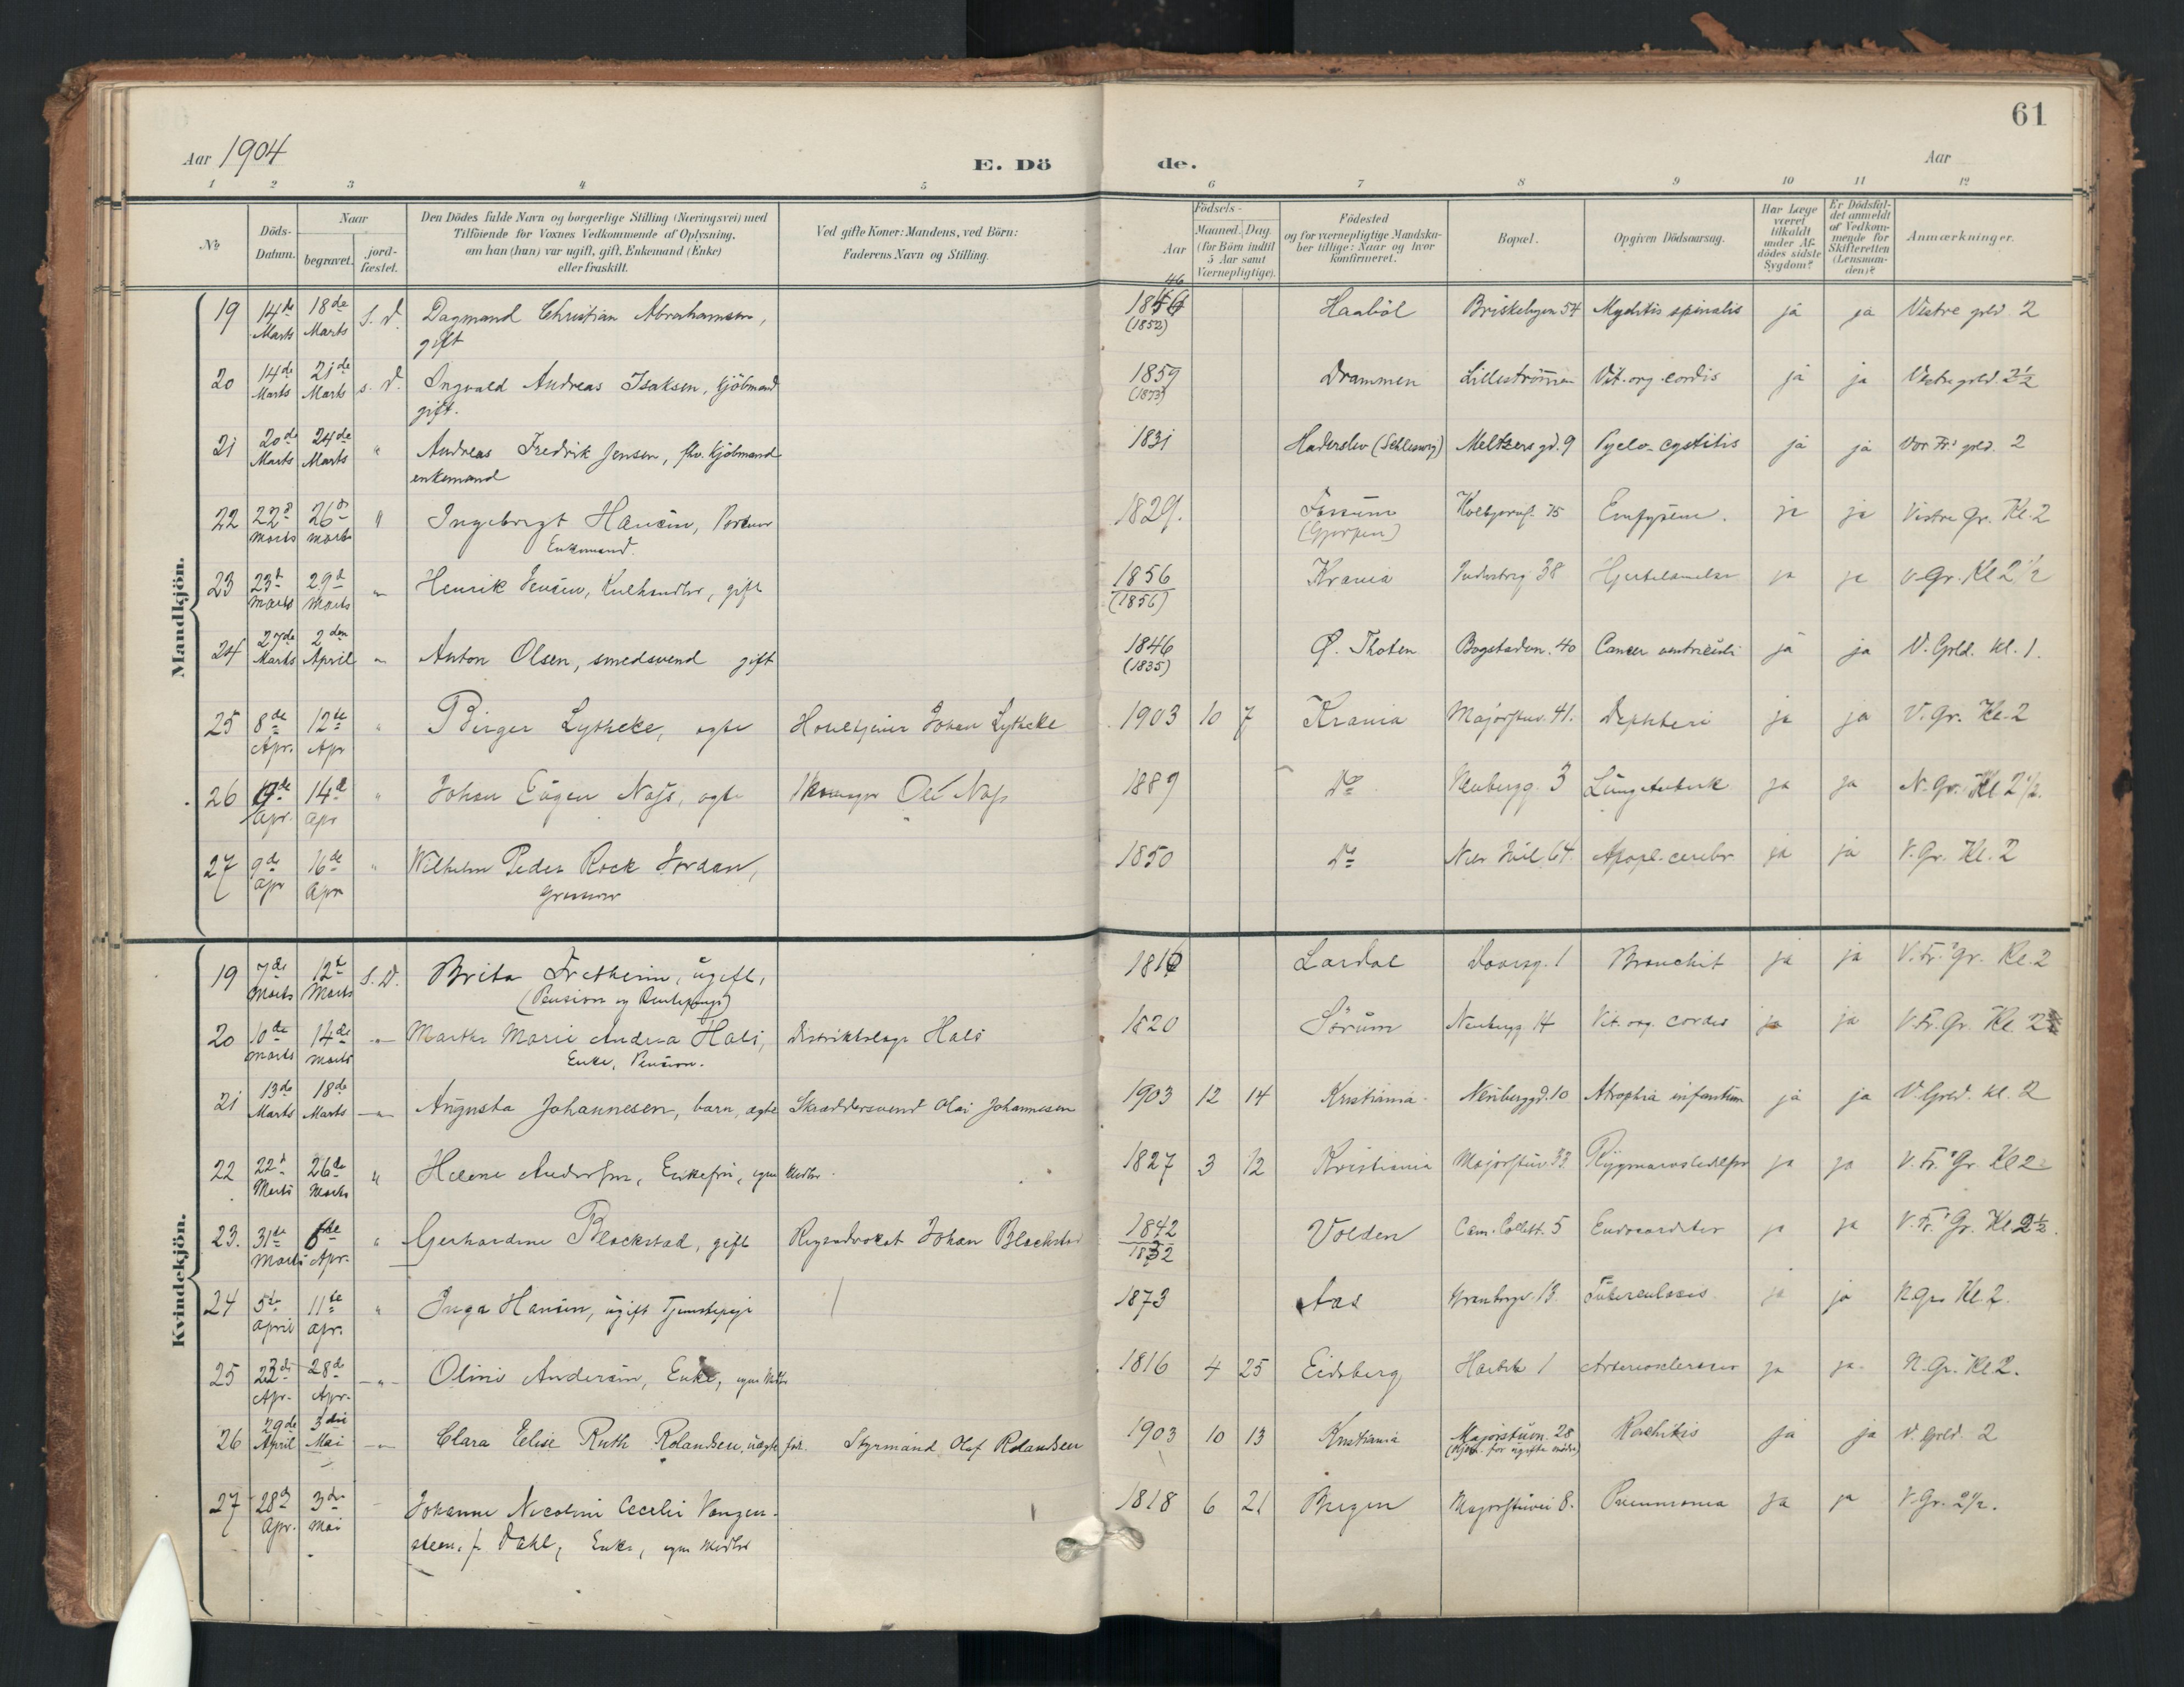 61
Aar 1904
E. Dö de.
Aar
1 2 3 4 5 6 7 8 9 10 11 12
No
Döds-Datum.
Naar
begravet.
jord-fæstet.
Den Dödes fulde Navn og borgerlige Stilling (Næringsvei) med
Tilföiende for Voxnes Vedkommende af Oplysning,
om han (hun) var ugift, gift, Enkemand (Enke)
eller fraskilt.
Ved gifte Koner: Mandens, ved Börn:
Faderens Navn og Stilling.
Födsels-
Aar
Maaned. Dag.
(for Börn indtil
5 Aar samt
Værnepligtige).
Födested
og for værnepligtige Mandska-
ber tillige: Naar og hvor
konfirmeret.
Bopæl.
Opgiven Dödsaarsag.
Har Læge
været
tilkaldt
under Af-
dödes sidste
Sygdom?
Er Dödsfal-
det anmeldt
af Vedkom-
mende for
Skifteretten
(Lensman-
den)?
Anmærkninger.
Mandkjön.
19 14de Marts 18de Marts s. d. Dagmand Christian Abrahamsen, 46 Haaböl Briskebyen 54 Myelitis spinalis ja ja Vestre grld 2
gift (1852)
20 14de Marts 21de Marts s. d. Ingvald Andreas Isaksen, kjöbmand 1859 Drammen Lilleströmmen Vit. org. cordis ja ja Vestre grld. 2½
gift. (1873)
21 20de Marts 24de Marts " Andreas Fredrik Jensen, fhv. kjöbmand 1831 Haderslev (Schleswig) Meltzers gd. 9 Pyelo-cystitis ja ja Vor Fr.s grld. 2
enkemand
22 22d Marts 26d Marts " Ingebrigt Hansen, 1829. Fossum 75 Emfysem. ja ja Vestre Gr. Kl. 2
Enkemand. (Gjerpen)
23 23d Marts 29d Marts " Henrik Jensen, Kulhandler, gift 1856 Krania 38 ja ja V. Gr. Kl 2½
(1856)
24 27de Marts 2den April " Anton Olsen, smedsvend gift 1846 Ø. Thoten Bogstadvn. 40 Cancer ventriculi ja ja V. Grld. kl. 1.
(1835)
25 8de Apr. 12te Apr " Birger Lytheke, egte Johan Lytheke 1903 10 7 Krania Majorstuv. 41. Difteri ja ja V. Gr. Kl. 2
26 Apr. 14d Apr " Johan Eugen Næss, egte Ole Næss 1889 Do Neuberg. 3 ja ja N. Gr. Kl 2½.
27 9de Apr 16de Apr " Wilhelm Peder Rock Jordan, 1850 Do Niels Juel. 64 Apopl. cerebr. ja ja V. Gr. Kl. 2
Kvindekjön.
19 7de Marts 12te Marts S. D. Brita Fretheim, ugift, Lærdal 1 Bronchit ja ja V. Fr.s Gr. Kl. 2
20 10de Marts 14de Marts " Marthe Marie Andrea Hals, Distriktslæge Hals 1820 Sörum Neubergg. 14 Vit. org. cordis ja ja V. Fr. Gr. Kl. 2
Enke, Pension.
21 13de Marts 18de Marts " Augusta Johannesen, barn, ægte Skræddersvend Olai Johannesen 1903 12 14 Kristiania Neubergg. 10 Atrophia infantum ja ja V. Grld. kl. 2
22 22d Marts 26de Marts " Helene Andersen, Enkefru, egne Midler. 1827 3 12 Kristiania Majorstuv. 33 ja ja V. Fr.s Gr. Kl 2
23. 31de Marts 6te Apr. " Gerhardine Blackstad, gift Johan Blackstad 1842 Volden Cam. Collett. 5 Endocarditis ja ja V. Fr.s Gr. Kl 2½.
24 5te April 11te Apr. " Inga Hansen, ugift Tjenestepige 1873 Aas 13 Tuberculosis ja ja N. Gr. Kl. 2.
25 Apr. 28de Apr. " Oline Andersen, Enke, egne Midler 1816 4 25 Eidsberg 1 Arteriosclerose ja ja N. Gr. Kl 2.
26 29de April 3die Mai " Clara Elise Ruth Rolandsen, uægte föd. Styrmand Olaf Rolandsen 1903 10 13 Kristiania Majorstuvn. 28 Rachitis ja ja V. Grld. 2
(Hjem for ugifte mödre)
27 28d Apr. 3die Mai Johanne Nicoline Cecilie Vangen- 1818 6 21 Bergen Majorstuvei 8. Pneumonia ja ja V. Gr. 2½.
steen, f. Dahl, Enke, egne Midler